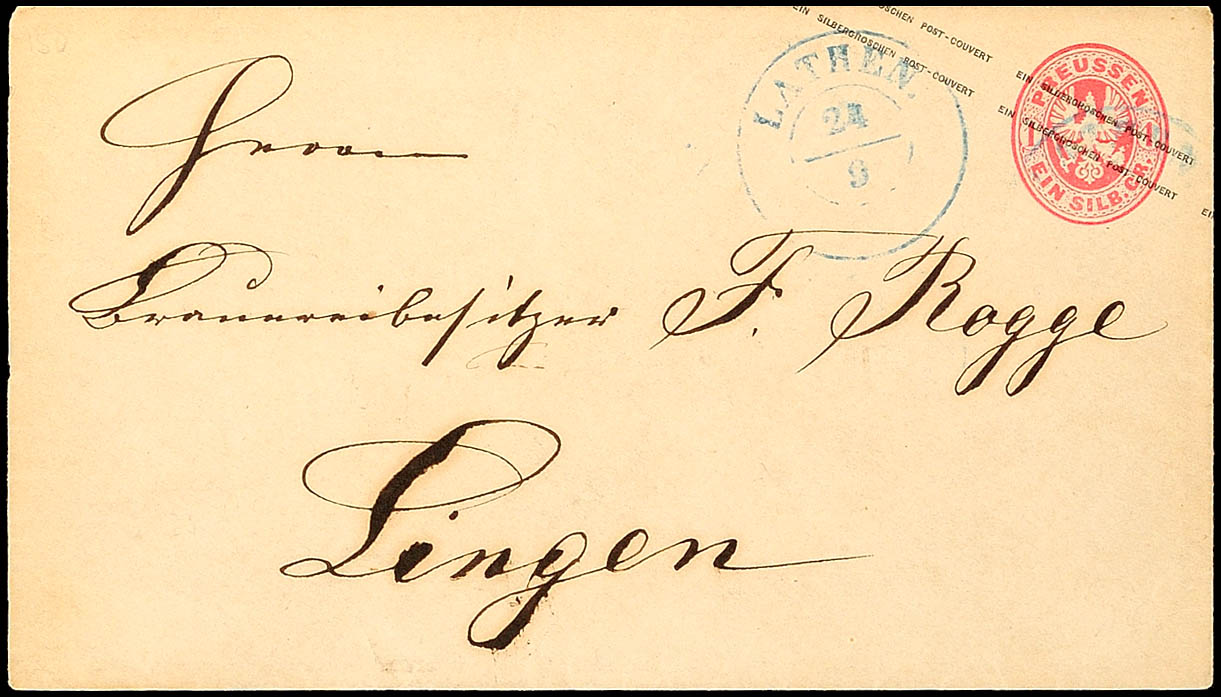 SCHEN POST-COUVERT
EIN SILBERGROSCHEN POST-COUVERT
EIN SILBERGROSCHEN POST-COUVERT
EIN SILBERGROSCHEN POST-COUVERT
EIN
LATHEN.
24
9
PREUSSEN
1 1
EIN SILB. GR.
Herrn
Brauereibesitzer F. Rogge
Lingen